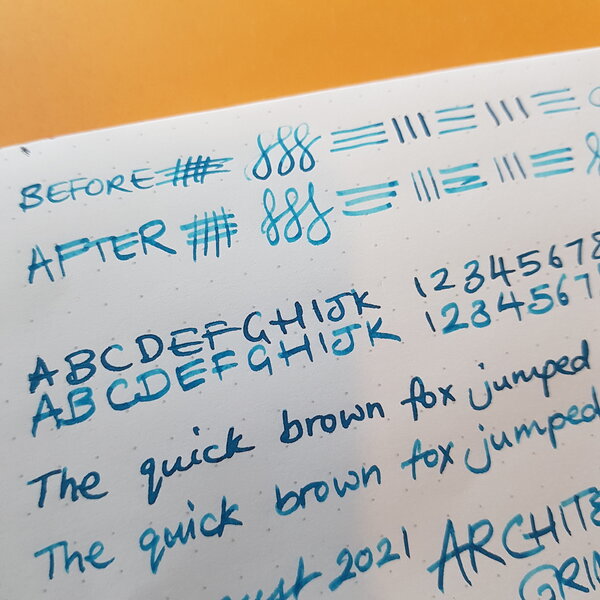 BEFORE
AFTER
ABCDEFGHIJK 12345678
ABCDEFGHIJK 1234567
The quick brown fox jumped
The quick brown fox jumped
2021